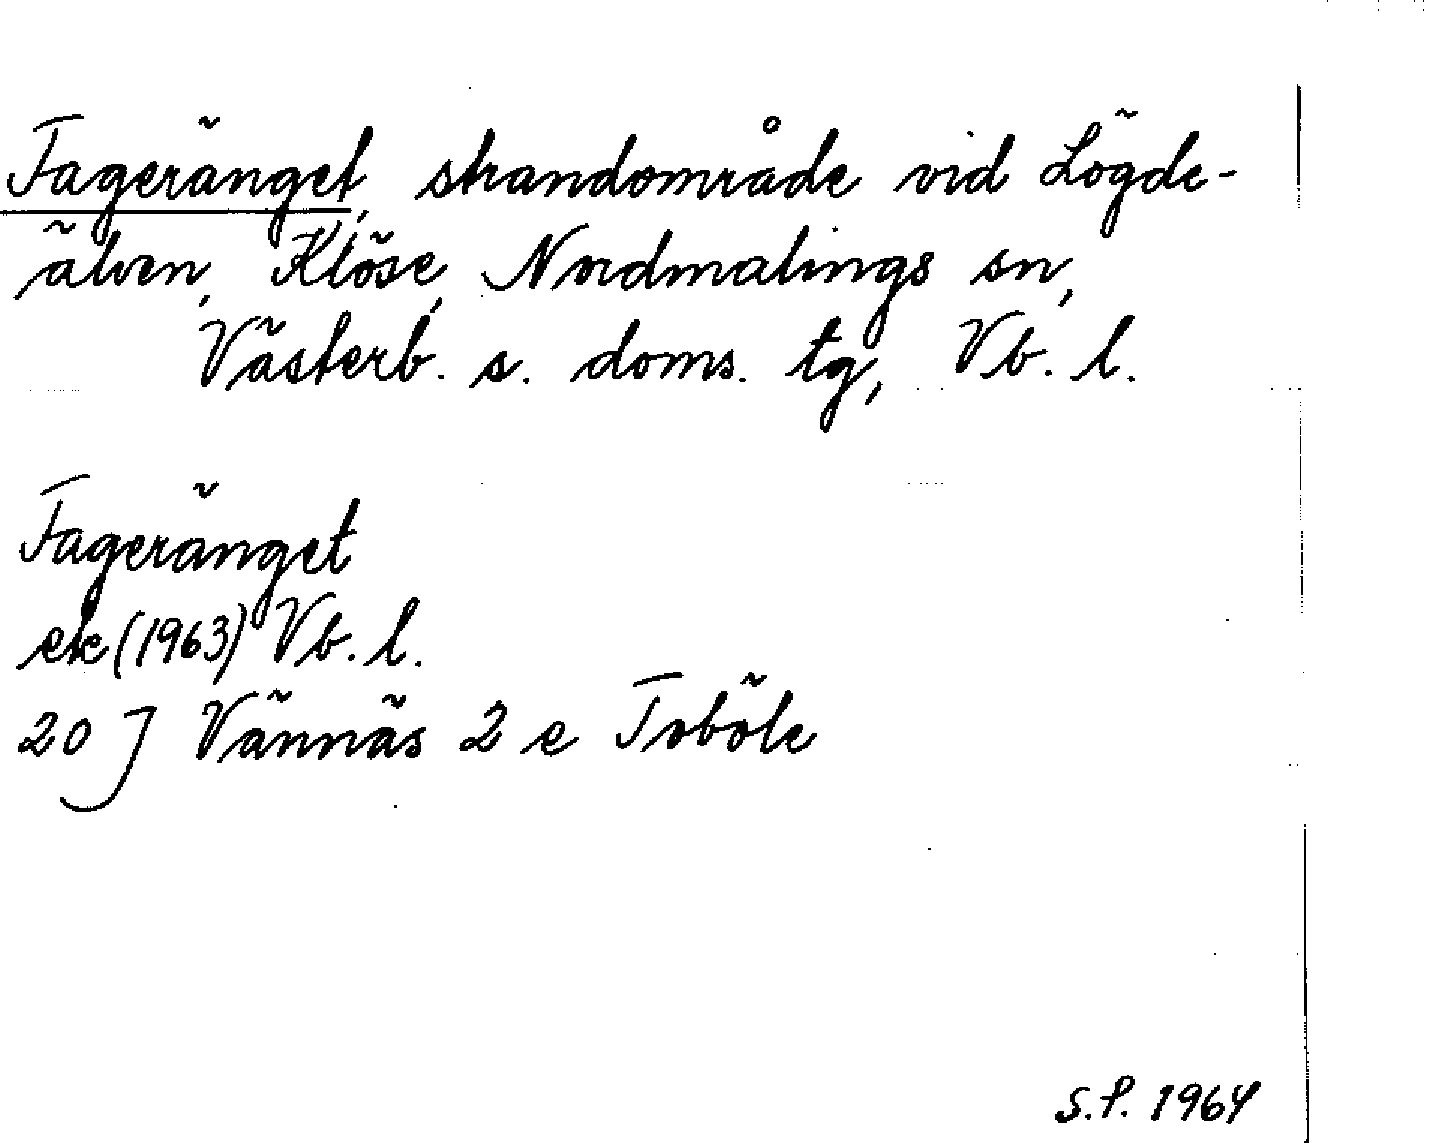 Fageränget, strandområde vid Lögde-
älven, Klöse, Nordmalings sn,
Västerb. s. doms. tg, Vb. l.
Fageränget
ek (1963) Vb. l.
20 J Vännäs 2 e Toböle
S.P. 1964